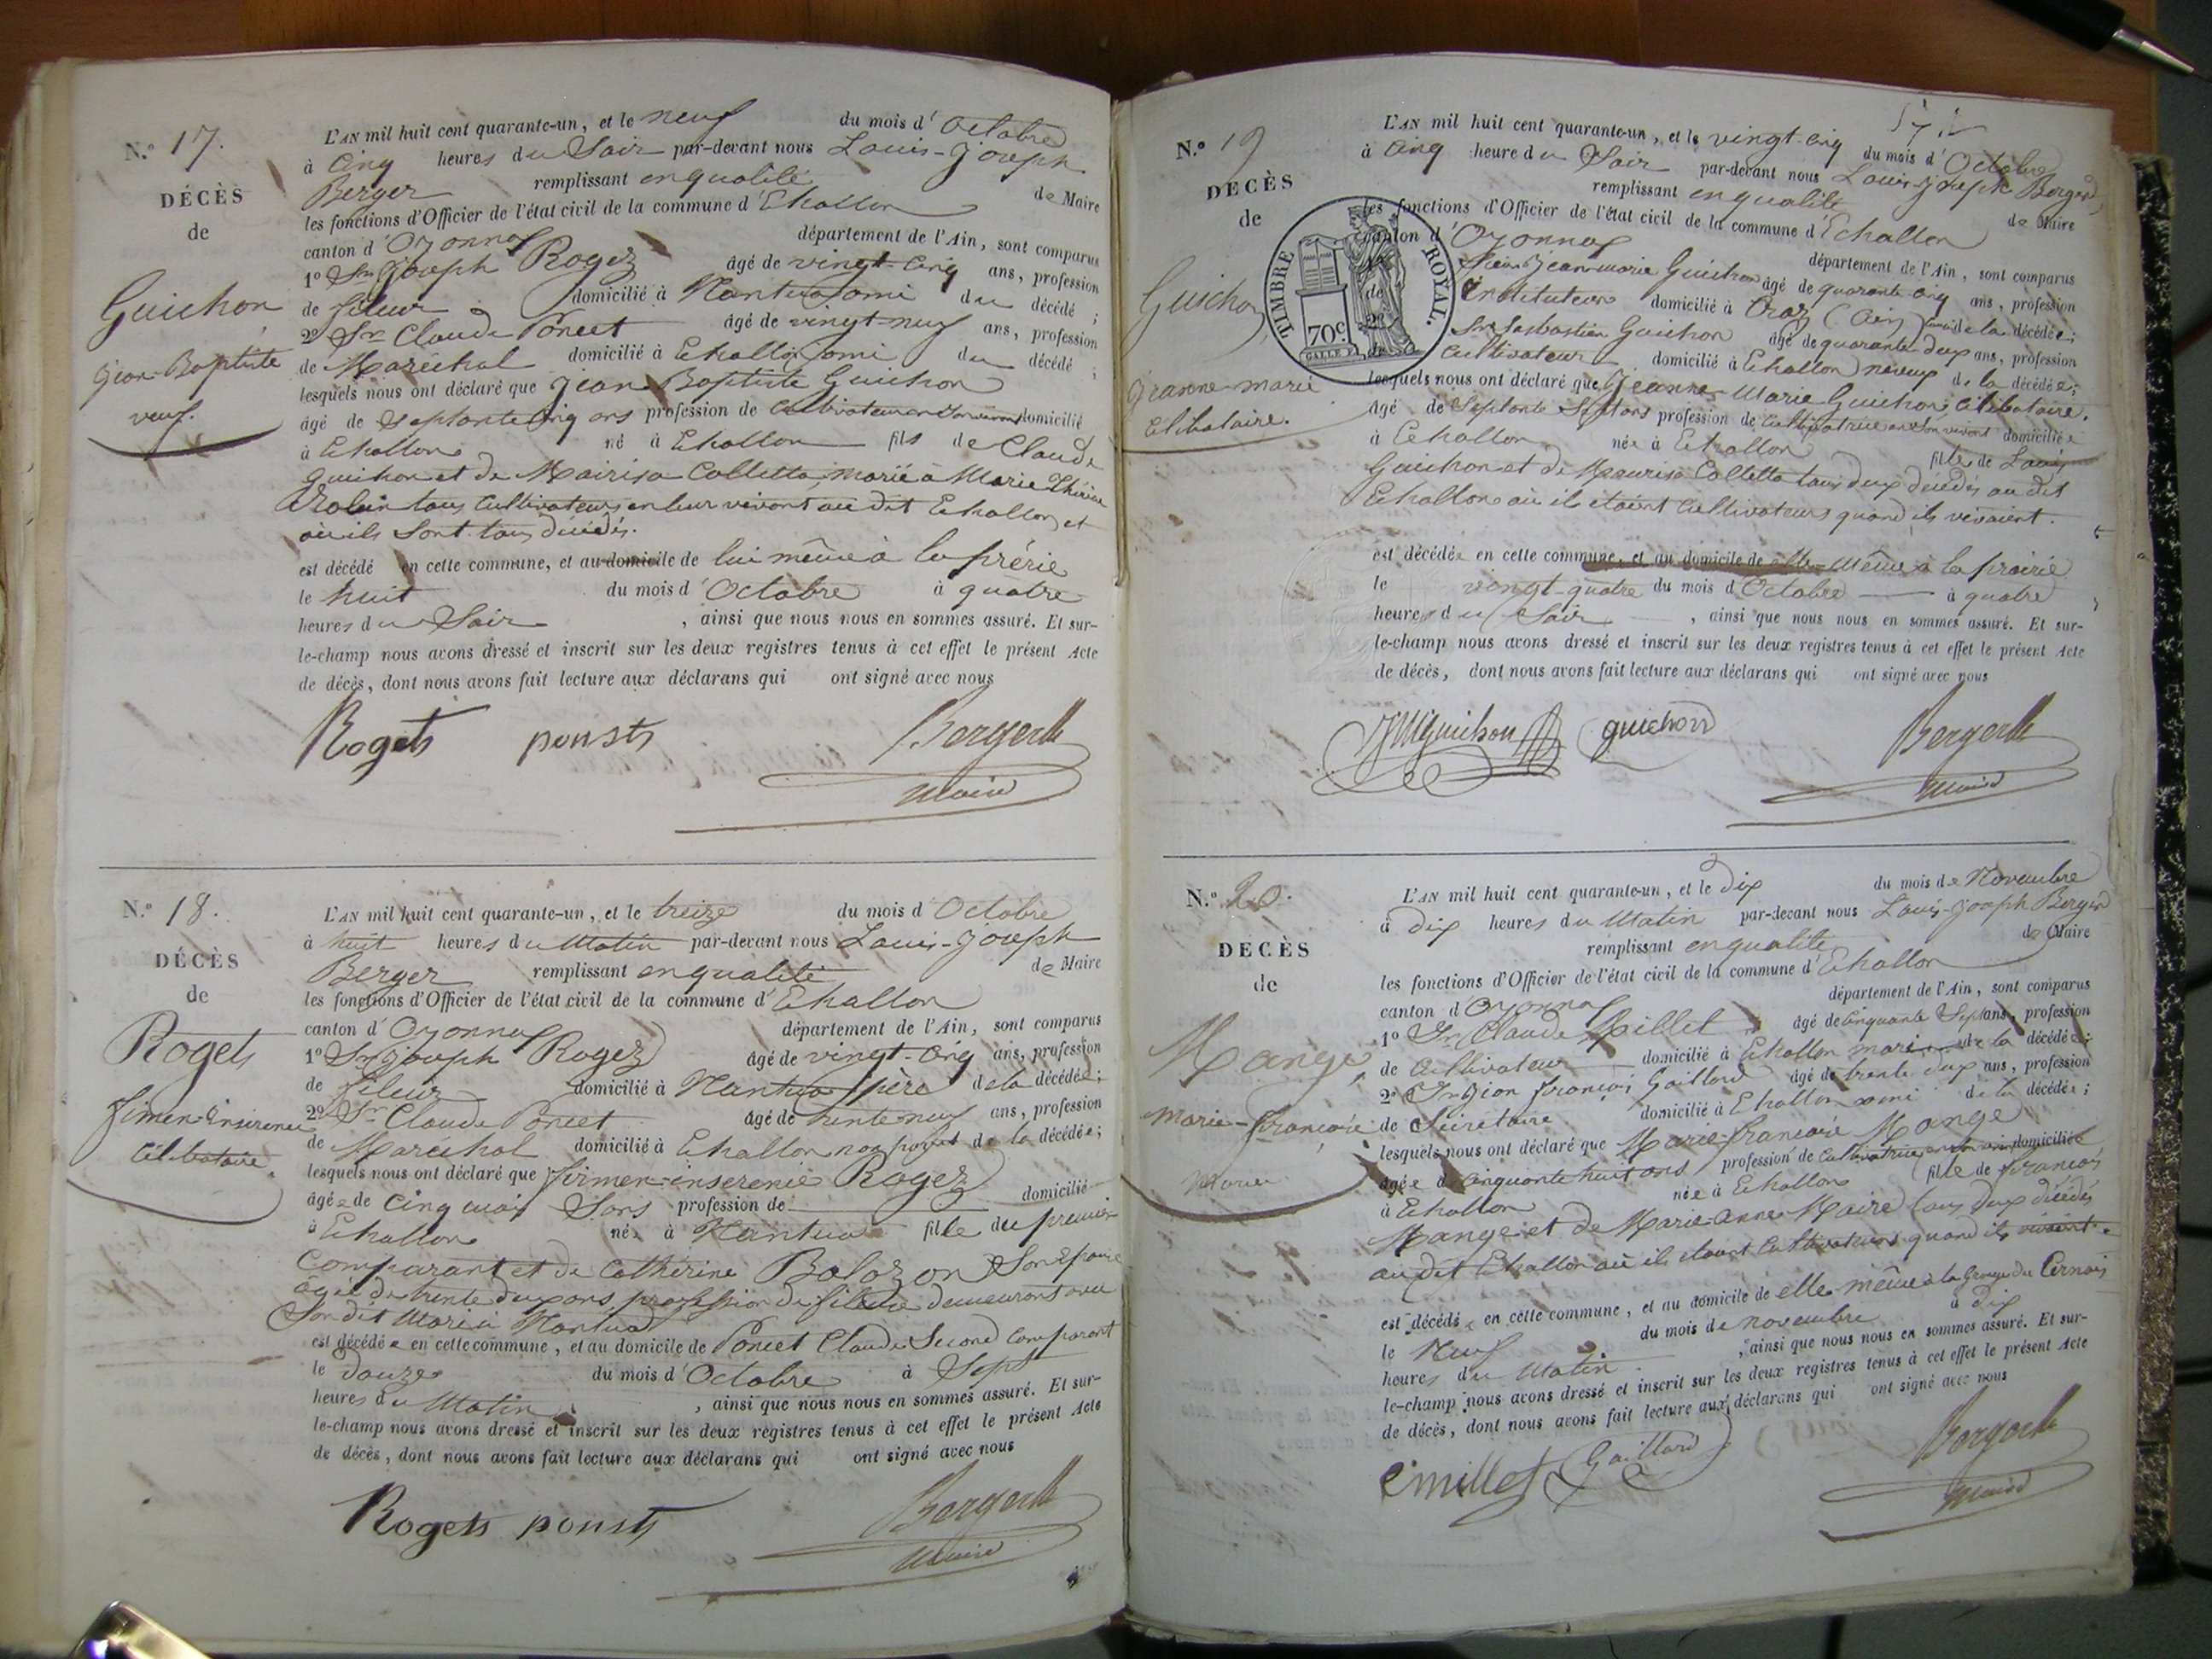 N.º 17.
DÉCÈS
de
Guichon
Jean-Baptiste
veuf.
L'AN mil huit cent quarante-un, et le neuf du mois d'Octobre
à Cinq heures du Soir par-devant nous Louis-Joseph
Berger remplissant en qualité de Maire
les fonctions d'Officier de l'état civil de la commune d'Echallon
canton d'Oyonnax département de l'Ain, sont comparus
1º Sr. Joseph Rogez âgé de vingt-Cinq ans, profession
de fileur domicilié à Nantua ami du décédé ;
2º Sr Claude Poncet âgé de vingt-neuf ans, profession
de Maréchal domicilié à Echallon ami du décédé ;
lesquels nous ont déclaré que Jean Baptiste Guichon
âgé de Septante Cinq ans profession de Cultivateur en Son vivant domicilié
à Echallon né à Echallon fils de Claude
Guichon et de Mairisa Colletta, marié à Marie Thérèse
tous Cultivateurs en leur vivant au dit Echallon et
où ils Sont tous décédés.
est décédé en cette commune, et au domicile de lui même à la prérie
le huit du mois d'Octobre à quatre
heures du Soir, ainsi que nous nous en sommes assuré. Et sur-
le-champ nous avons dressé et inscrit sur les deux registres tenus à cet effet le présent Acte
de décès, dont nous avons fait lecture aux déclarans qui ont signé avec nous
Rogets ponsts Berger
Maire
N.º 18.
DÉCÈS
de
Rogets
Célibataire.
L'AN mil huit cent quarante-un, et le treize du mois d'Octobre
à huit heures du Matin par-devant nous Louis-Joseph
Berger remplissant en qualité de Maire
les fonctions d'Officier de l'état civil de la commune d'Echallon
canton d'Oyonnax département de l'Ain, sont comparus
1º Sr. Joseph Rogez âgé de vingt-Cinq ans, profession
de fileur domicilié à Nantua père de la décédée ;
2º Sr Claude Poncet âgé de trente neuf ans, profession
de Maréchal domicilié à Echallon non parent de la décédée ;
lesquels nous ont déclaré que Rogez
âgée de Cinq mois Sans profession de domicilié
à Echallon née à Nantua fille du premier
Comparant et de Cathérine Balozon Son épouse
âgée de trente deux ans profession de fileuse demeurant avec
Son dit Mari à Nantua
est décédée en cette commune, et au domicile de Poncet Claude Second Comparant
le douze du mois d'Octobre à Sept
heures du Matin, ainsi que nous nous en sommes assuré. Et sur-
le-champ nous avons dressé et inscrit sur les deux registres tenus à cet effet le présent Acte
de décès, dont nous avons fait lecture aux déclarans qui ont signé avec nous
Rogets ponsts Berger
Maire
N.º 19
DÉCÈS
de
Guichon
Jeanne-Marie
Célibataire.
TIMBRE ROYAL.
70c.
L'AN mil huit cent quarante-un, et le vingt-Cinq du mois d'Octobre
à Cinq heure du Soir par-devant nous Louis-Joseph Berger
remplissant en qualité de Maire
les fonctions d'Officier de l'état civil de la commune d'Echallon
canton d'Oyonnax département de l'Ain, sont comparus
Jean-Marie Guichon âgé de quarante Cinq ans, profession
de instituteur domicilié à (Ain) de la décédée ;
2º Sr Sasbastien Guichon âgé de quarante-deux ans, profession
de Cultivateur domicilié à Echallon neveux de la décédée ;
lesquels nous ont déclaré que Jeanne-Marie Guichon Célibataire.
âgé de Septante Sept ans profession de Cultivatrice en Son vivant domiciliée
à Echallon née à Echallon fille de Louis
Guichon et de Maurisa Colletta tous deux décédés au dit
Echallon où ils étaient Cultivateurs quand ils vivaient.
est décédée en cette commune, et au domicile de elle-même à la prairie
le vingt-quatre du mois d'Octobre à quatre
heures du Soir, ainsi que nous nous en sommes assuré. Et sur-
le-champ nous avons dressé et inscrit sur les deux registres tenus à cet effet le présent Acte
de décès, dont nous avons fait lecture aux déclarans qui ont signé avec nous
JMGuichon guichon Berger
Maire
N.º 20.
DÉCÈS
de
Mange
Marie-françoise
L'AN mil huit cent quarante-un, et le dix du mois de Novembre
à dix heures du Matin par-devant nous Louis-Joseph Berger
remplissant en qualité de Maire
les fonctions d'Officier de l'état civil de la commune d'Echallon
canton d'Oyonnax département de l'Ain, sont comparus
1º Sr Claude Millet âgé de Cinquante Sept ans, profession
de Cultivateur domicilié à Echallon mari de la décédée ;
2º Sr Jean françois Gaillard âgé de trente deux ans, profession
de Sécrétaire domicilié à Echallon ami de la décédée ;
lesquels nous ont déclaré que Marie-françoise Mange
âgée de Cinquante huit ans profession de Cultivatrice en Son vivant domiciliée
à Echallon née à Echallon fille de françois
Mange et de Marie-anne Maire tous deux décédés
au dit Echallon où ils étaient Cultivateurs quand ils vivaient.
est décédée en cette commune, et au domicile de elle-même à la Grange du Cernois
le Neuf du mois de novembre à dix
heures du Matin, ainsi que nous nous en sommes assuré. Et sur-
le-champ nous avons dressé et inscrit sur les deux registres tenus à cet effet le présent Acte
de décès, dont nous avons fait lecture aux déclarans qui ont signé avec nous
Cmillet Gaillard Berger
Maire